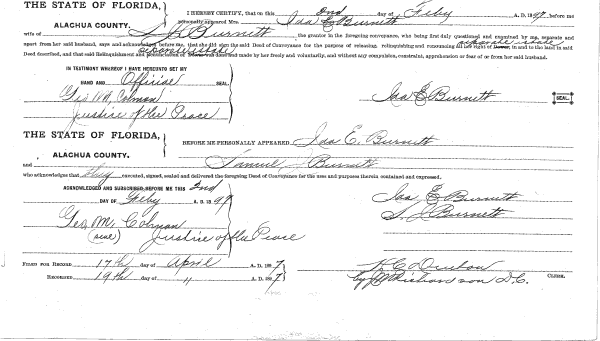 THE STATE OF FLORIDA,
ALACHUA COUNTY.
I HEREBY CERTIFY, that on this 2nd day of Feby A. D. 1897 before me
personally appeared Mrs. Ida E Burnett
wife of S. J. Burnett the grantor in the foregoing conveyance, who being first duly questioned and examined by me, separate and
apart from her said husband, says and acknowledges before me, that she did sign the said Deed of Conveyance for the purpose of releasing, relinquishing and renouncing all her right of Dower, in and to the land in said
separate estate
Deed described, and that said Relinquishment and Renunciation of Dower was done and made by her freely and voluntarily, and without any compulsion, constraint, apprehension or fear of or from her said husband.
IN TESTIMONY WHEREOF I HAVE HEREUNTO SET MY
HAND AND Official SEAL.
Geo M. Colman
Justice of the Peace
Ida E Burnett SEAL.
THE STATE OF FLORIDA,
ALACHUA COUNTY.
BEFORE ME PERSONALLY APPEARED Ida E. Burnett
and Samuel J Burnett
who acknowledges that they executed, signed, sealed and delivered the foregoing Deed of Conveyance for the uses and purposes therein contained and expressed.
ACKNOWLEDGED AND SUBSCRIBED BEFORE ME THIS 2nd
DAY OF Feby A. D. 1897
Geo. M. Colman
(seal) Justice of the Peace
Ida E Burnett
S. J. Burnett
FILED FOR RECORD 17th day of April A. D. 1897
RECORDED 19th day of " A. D. 1897
H C Denton CLERK.
by D. C.